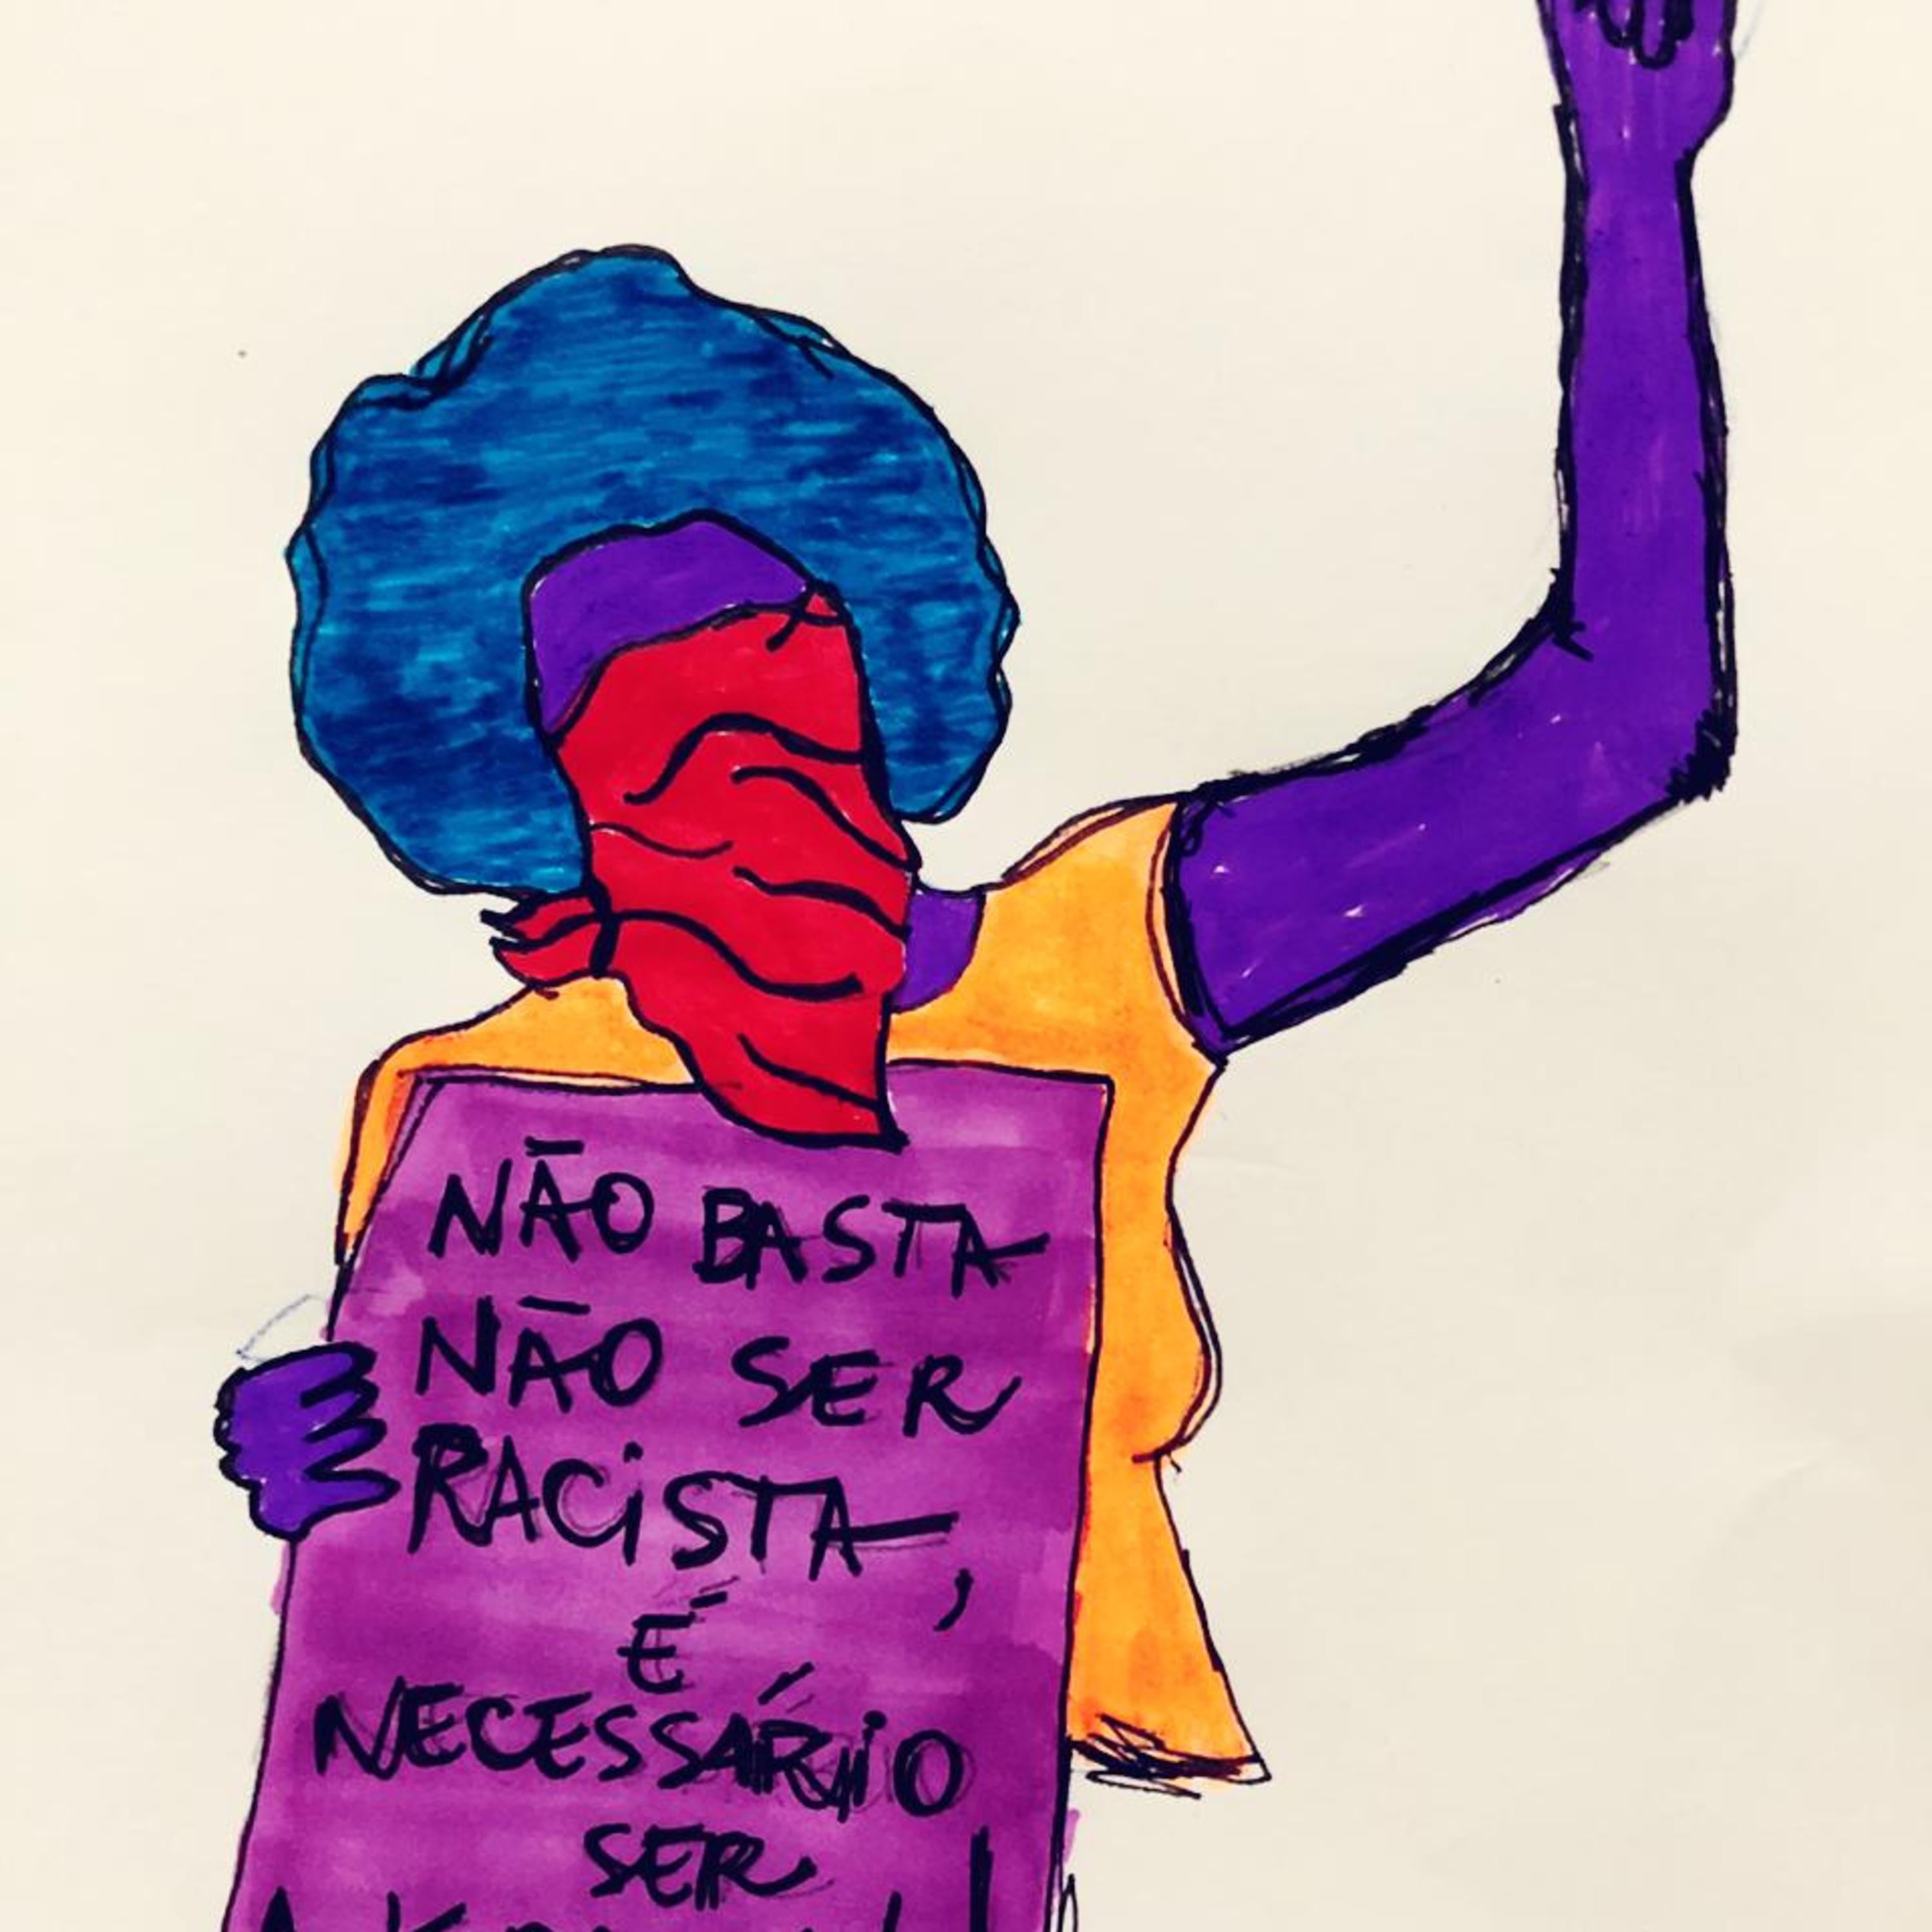 NÃO BASTA
NÃO SER
RACISTA,
É
NECESSÁRIO
SER